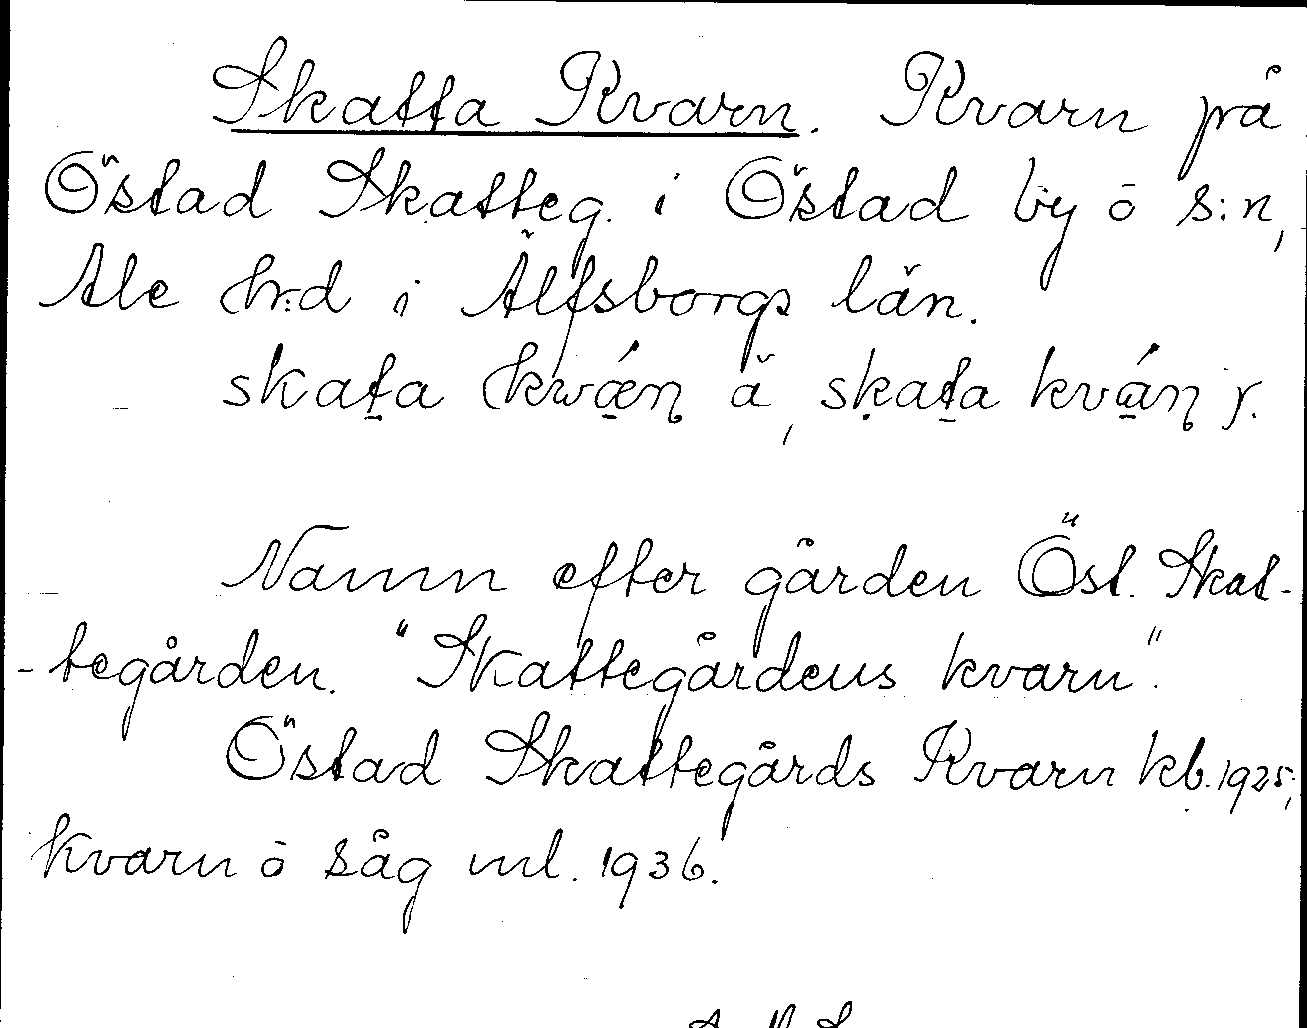 Skatta Kvarn. Kvarn på
Östad Skatteg. i Östad by ō s:n,
Ale hrd i Älfsborgs län.
skata kwǽn ä, skata kván r.
Namn efter gården Öst. Skat-
-tegården. "Skattegårdens kvarn".
Östad Skattegårds Kvarn kb. 1925;
kvarn ō såg ml. 1936.